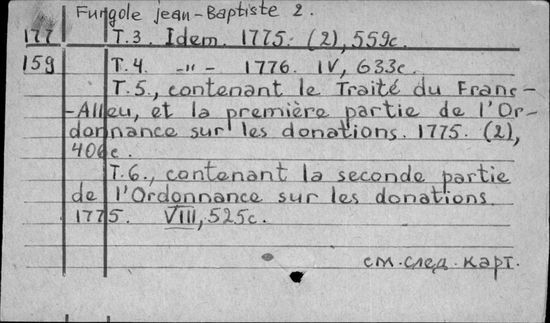 Furgole jean-Baptiste 2.
177 T.3. Idem. 1775. (2), 559с.
159 T.4. -"- 1776. IV, 633с.
T.5., contenant le Traité du Franc-
-Alleu, et la première partie de l'Or-
donnance sur les donations. 1775. (2),
406с.
T.6., contenant la seconde partie
de l'Ordonnance sur les donations
1775. VIII, 525с.
см. след. карт.